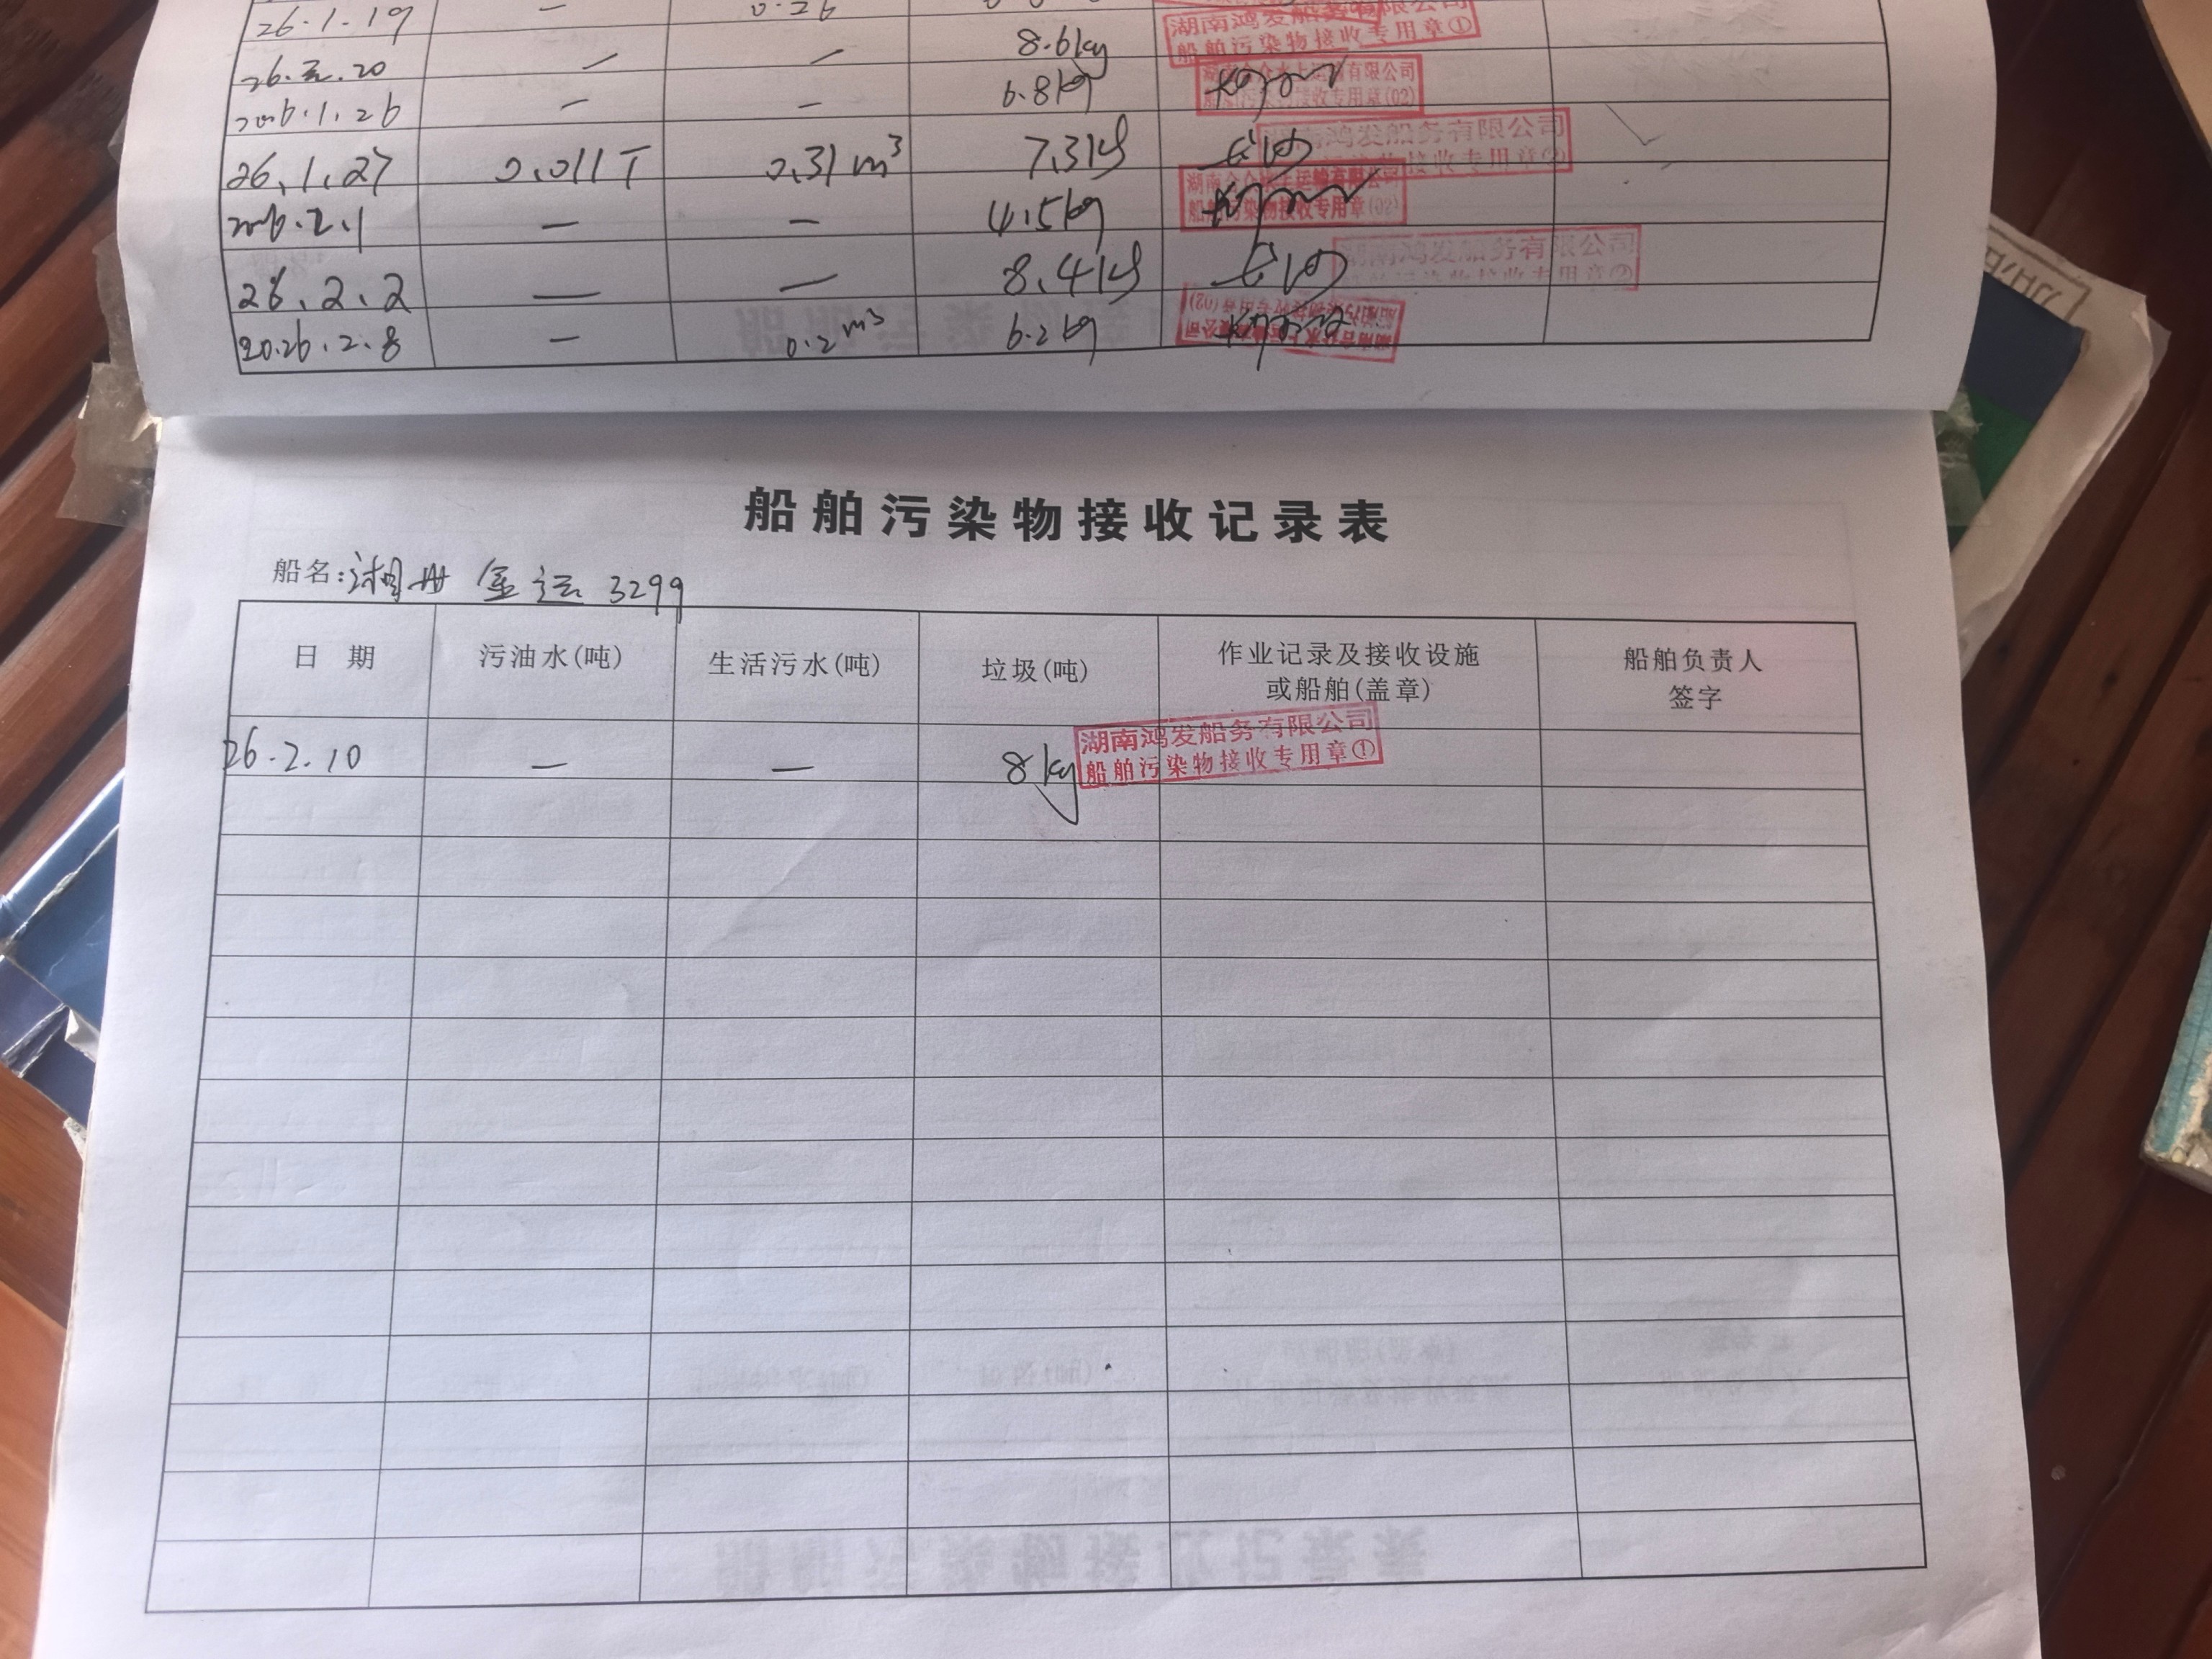 26.1.19 — 0.26
湖南鸿发船务有限公司
船舶污染物接收专用章①
20 — — 8.6kg
2026.1.26 — — 6.8kg
水上运输有限公司
接收专用章(02)
26.1.27 0.011T 0.31m³ 7.3kg
南鸿发船务有限公司
接收专用章②
2026.2.1 — — 4.5kg
湖南合众水上运输有限公司
船舶污染物接收专用章(02)
26.2.2 — — 8.4kg
湖南鸿发船务有限公司
2026.2.8 — 0.2m³ 6.2kg
船舶污染物接收记录表
船名:湘册金运3299
日 期 污油水(吨) 生活污水(吨) 垃圾(吨) 作业记录及接收设施 船舶负责人
或船舶(盖章) 签字
26.2.10 — — 8kg
湖南鸿发船务有限公司
船舶污染物接收专用章①